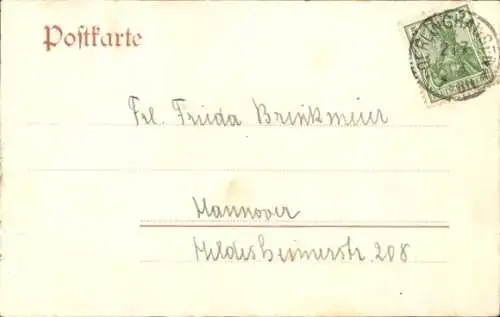 Postkarte
OERLINGHAUSEN
Frl. Frieda Brinkmeier
Hannover
Hildesheimerstr. 208